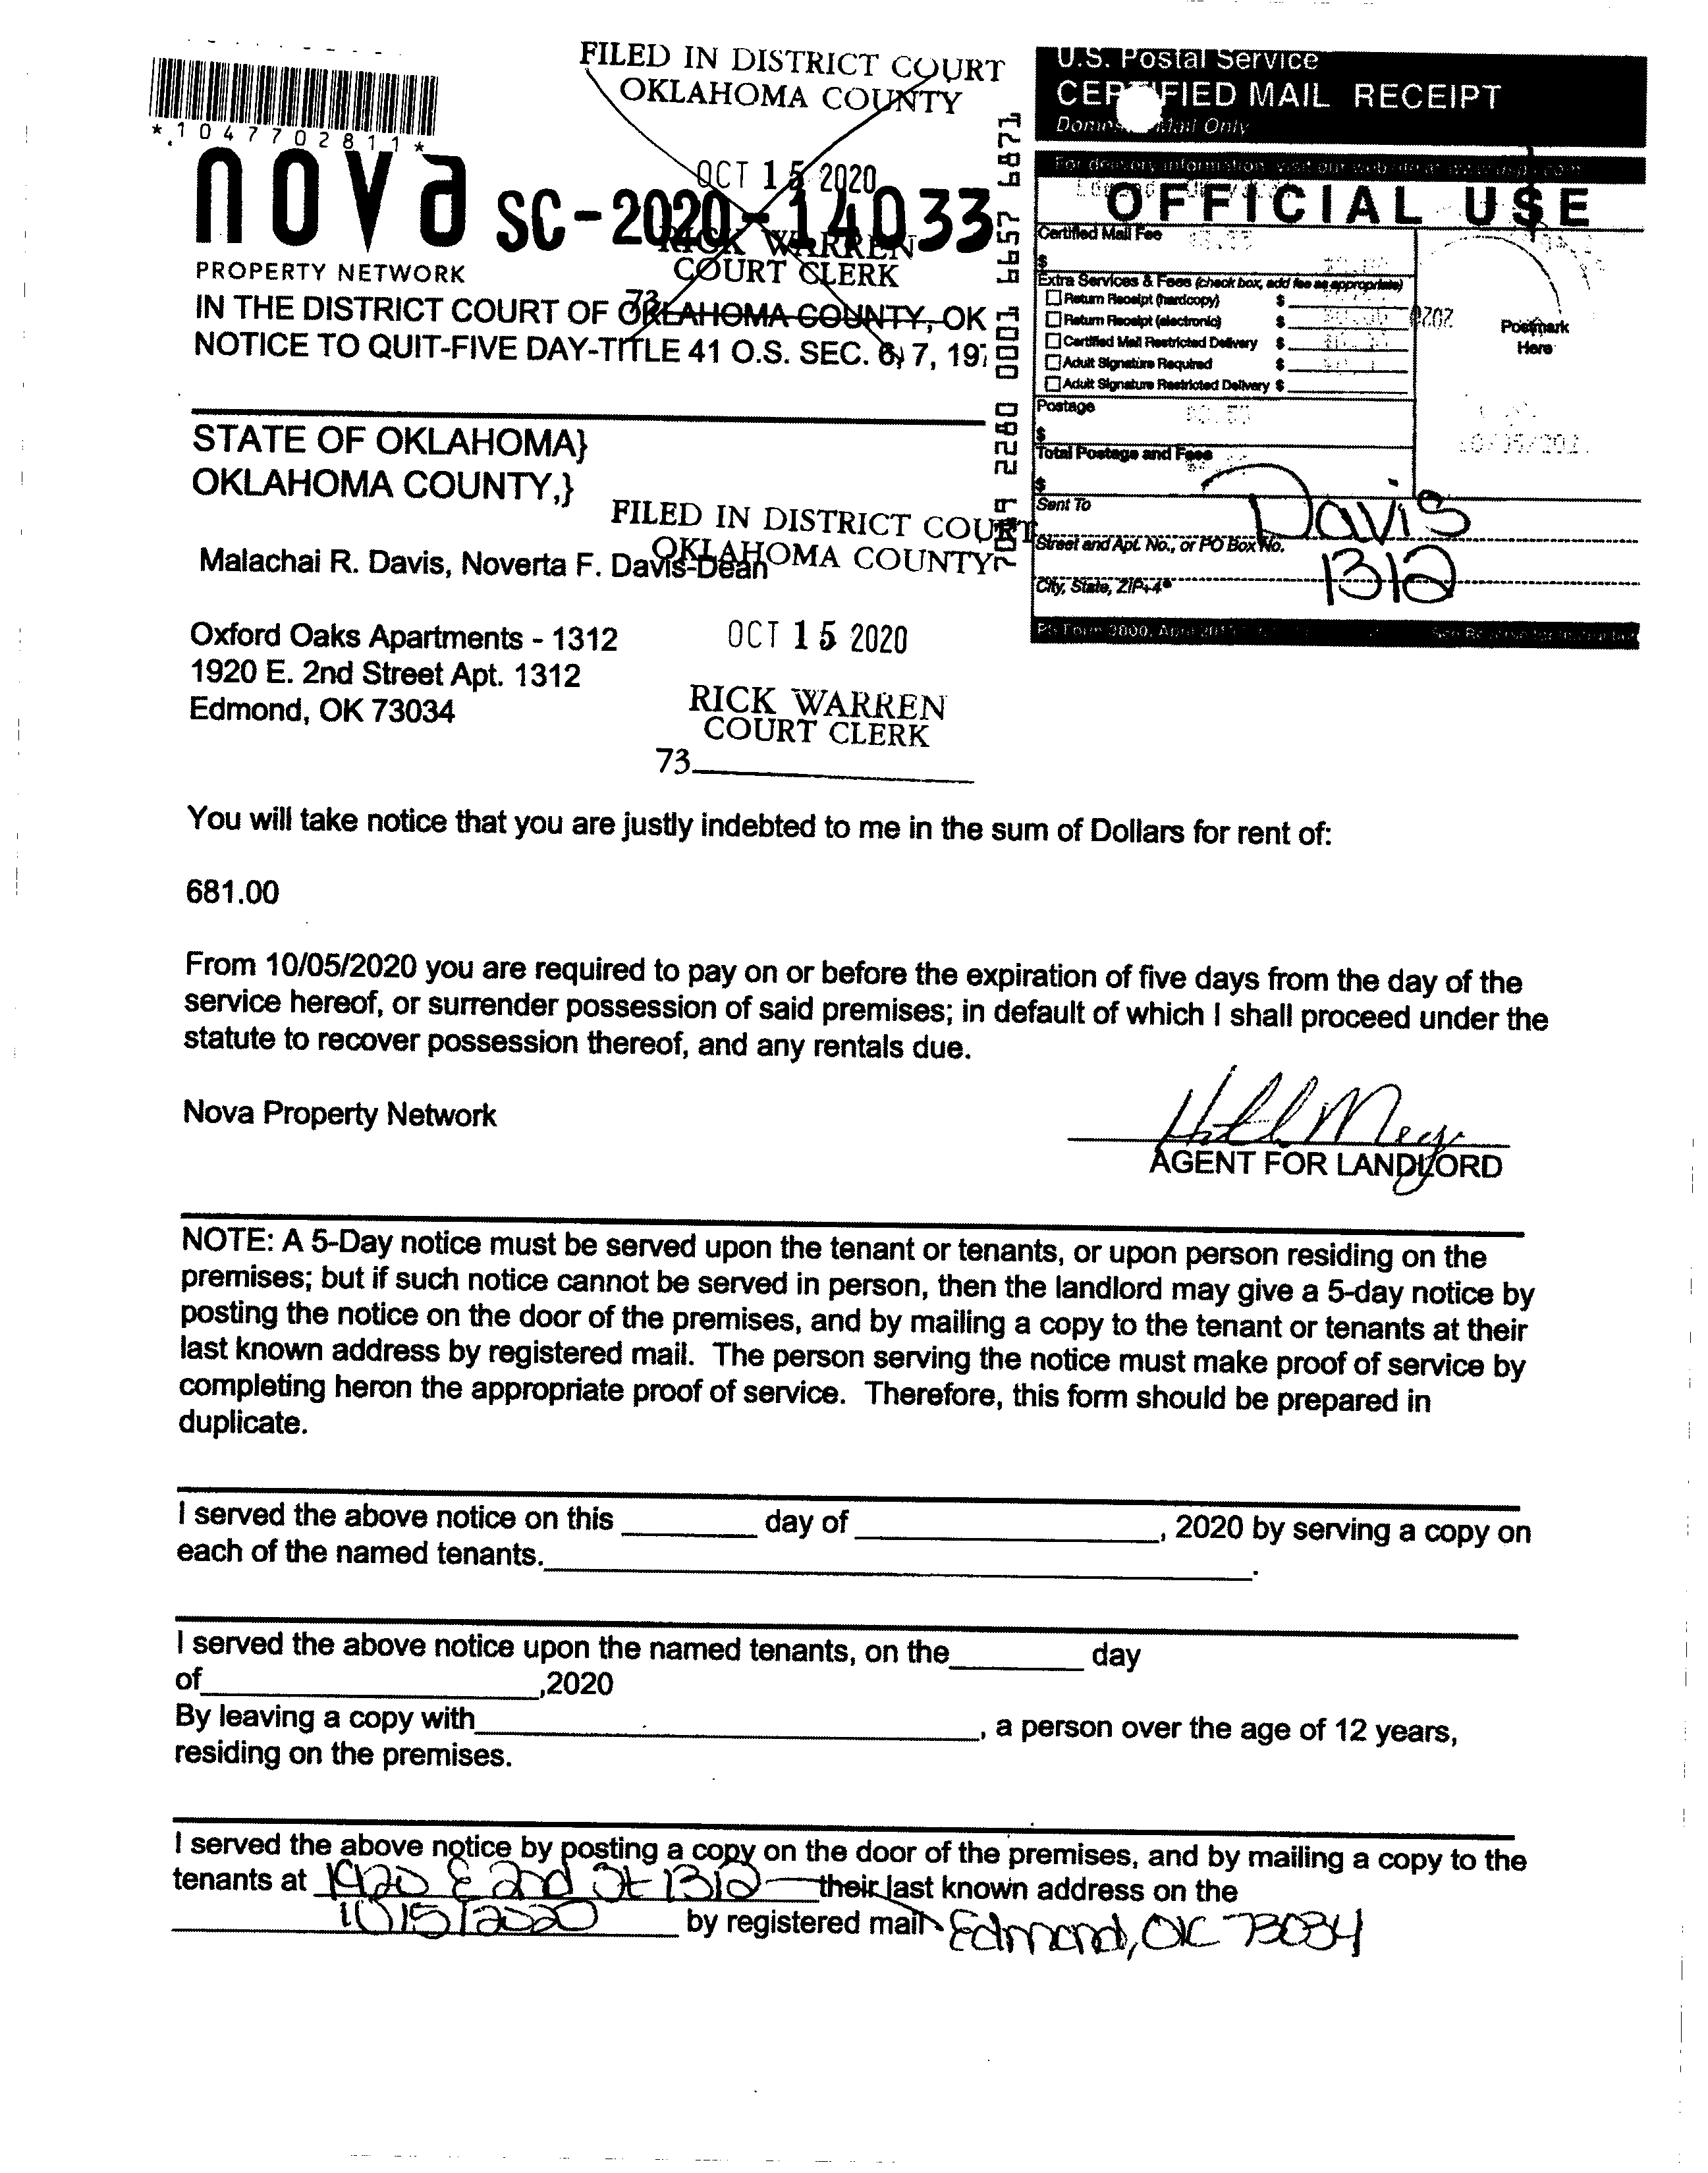 FILED IN DISTRICT COURT
OKLAHOMA COUNTY
*1047702811*
OCT 15 2020
nova
PROPERTY NETWORK
SC-2020-14033
RICK WARREN
COURT CLERK
73
IN THE DISTRICT COURT OF OKLAHOMA COUNTY, OK
NOTICE TO QUIT-FIVE DAY-TITLE 41 O.S. SEC. 6, 7, 197
U.S. Postal Service
CERTIFIED MAIL RECEIPT
Domestic Mail Only
OFFICIAL USE
Certified Mail Fee
$
Extra Services & Fees (check box, add fee as appropriate)
Return Receipt (hardcopy) $
Return Receipt (electronic) $
Certified Mail Restricted Delivery $
Adult Signature Required $
Adult Signature Restricted Delivery $
Postmark
Here
Postage
$
Total Postage and Fees
$
Sent To
Davis
Street and Apt. No., or PO Box No.
1312
City, State, ZIP+4®
2280 0001 6657 6871
STATE OF OKLAHOMA}
OKLAHOMA COUNTY,}
FILED IN DISTRICT COURT
OKLAHOMA COUNTY
Malachai R. Davis, Noverta F. Davis-Dean
Oxford Oaks Apartments - 1312
1920 E. 2nd Street Apt. 1312
Edmond, OK 73034
OCT 15 2020
RICK WARREN
COURT CLERK
73
You will take notice that you are justly indebted to me in the sum of Dollars for rent of:
681.00
From 10/05/2020 you are required to pay on or before the expiration of five days from the day of the
service hereof, or surrender possession of said premises; in default of which I shall proceed under the
statute to recover possession thereof, and any rentals due.
Nova Property Network
AGENT FOR LANDLORD
NOTE: A 5-Day notice must be served upon the tenant or tenants, or upon person residing on the
premises; but if such notice cannot be served in person, then the landlord may give a 5-day notice by
posting the notice on the door of the premises, and by mailing a copy to the tenant or tenants at their
last known address by registered mail. The person serving the notice must make proof of service by
completing heron the appropriate proof of service. Therefore, this form should be prepared in
duplicate.
I served the above notice on this ____ day of ____, 2020 by serving a copy on
each of the named tenants.____.
I served the above notice upon the named tenants, on the____ day
of____,2020
By leaving a copy with____, a person over the age of 12 years,
residing on the premises.
I served the above notice by posting a copy on the door of the premises, and by mailing a copy to the
tenants at 1920 E 2nd St 1312 their last known address on the
10/5/2020 by registered mail Edmond, OK 73034